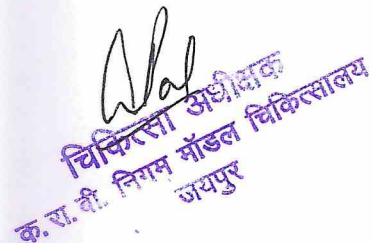 चिकित्सा अधीक्षक
क. रा. बी. निगम मॉडल चिकित्सालय
जयपुर